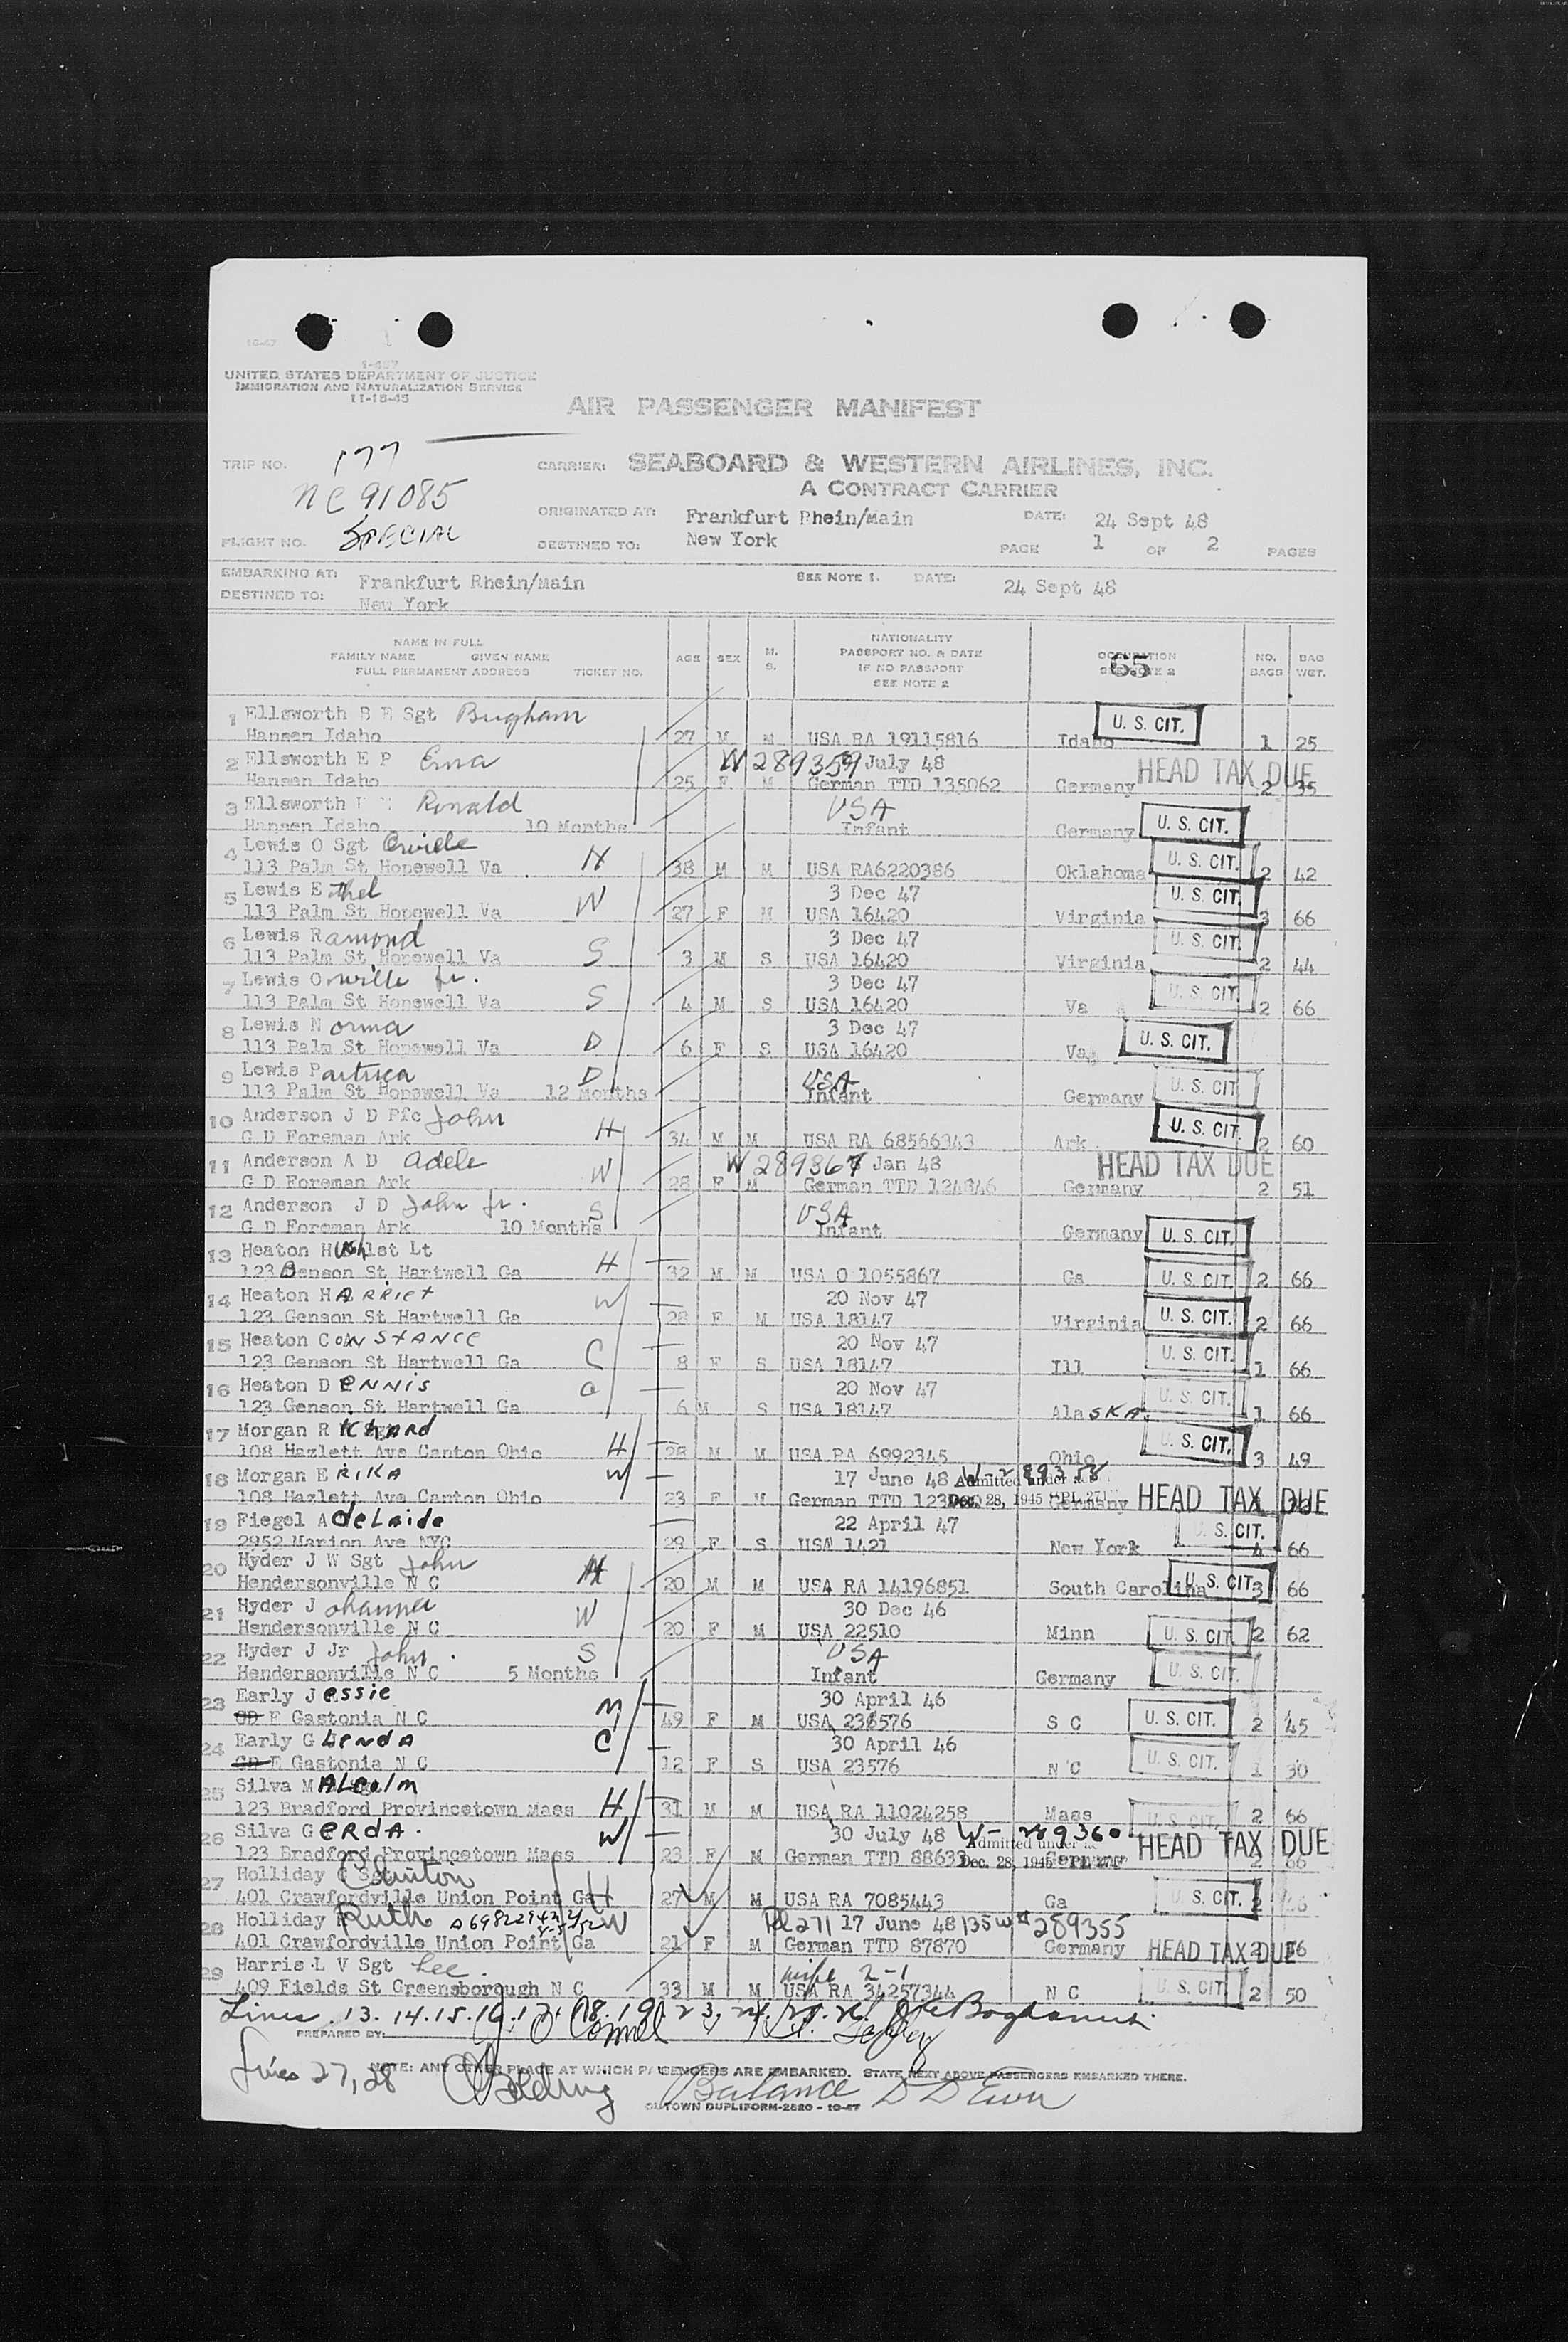 10-47
1-467
UNITED STATES DEPARTMENT OF JUSTICE
IMMIGRATION AND NATURALIZATION SERVICE
11-15-45
AIR PASSENGER MANIFEST
TRIP NO. 177 CARRIER: SEABOARD & WESTERN AIRLINES, INC.
NC 91085 A CONTRACT CARRIER
ORIGINATED AT: Frankfurt Rhein/Main DATE: 24 Sept 48
FLIGHT NO. SPECIAL DESTINED TO: New York PAGE 1 OF 2 PAGES
EMBARKING AT: Frankfurt Rhein/Main SEE NOTE 1. DATE: 24 Sept 48
DESTINED TO: New York
NAME IN FULL
FAMILY NAME GIVEN NAME
FULL PERMANENT ADDRESS TICKET NO.
AGE SEX M. S.
NATIONALITY
PASSPORT NO. & DATE
IF NO PASSPORT
SEE NOTE 2
OCCUPATION
65
NO. BAGS
BAG WGT.
1 Ellsworth B E Sgt
Hansen Idaho 27 M M USA RA 19115816 Idaho U. S. CIT. 1 25
2 Ellsworth E P Erna W 289359 July 48
Hansen Idaho 25 F M German TTD 135062 Germany HEAD TAX DUE 2 35
3 Ellsworth Ronald USA
Hansen Idaho 10 Months Infant Germany U. S. CIT.
4 Lewis O Sgt Orville
113 Palm St Hopewell Va H 38 M M USA RA6220386 Oklahoma U. S. CIT. 2 42
5 Lewis Ethel 3 Dec 47
113 Palm St Hopewell Va W 27 F M USA 16420 Virginia U. S. CIT. 3 66
6 Lewis Ramond 3 Dec 47
113 Palm St Hopewell Va S 3 M S USA 16420 Virginia U. S. CIT. 2 44
7 Lewis Orville Jr. 3 Dec 47
113 Palm St Hopewell Va S 4 M S USA 16420 Va U. S. CIT. 2 66
8 Lewis Norma 3 Dec 47
113 Palm St Hopewell Va D 6 F S USA 16420 Va U. S. CIT.
9 Lewis Patrica USA
113 Palm St Hopewell Va 12 Months D Infant Germany U. S. CIT.
10 Anderson J D Pfc John
G D Foreman Ark H 34 M M USA RA 68566343 Ark U. S. CIT. 2 60
11 Anderson A D Adele W 289367 Jan 48
G D Foreman Ark W 28 F M German TTD 124846 Germany HEAD TAX DUE 2 51
12 Anderson J D John Jr. USA
G D Foreman Ark 10 Months S Infant Germany U. S. CIT.
13 Heaton Hugh 1st Lt
123 Benson St Hartwell Ga H 32 M M USA O 1055867 Ga U. S. CIT. 2 66
14 Heaton HARRIET 20 Nov 47
123 Genson St Hartwell Ga W 28 F M USA 18147 Virginia U. S. CIT. 2 66
15 Heaton CONSTANCE 20 Nov 47
123 Genson St Hartwell Ga C 8 F S USA 18147 Ill U. S. CIT. 1 66
16 Heaton DENNIS 20 Nov 47
123 Genson St Hartwell Ga C 6 M S USA 18147 Alaska U. S. CIT. 1 66
17 Morgan Richard
108 Hazlett Ave Canton Ohio H 28 M M USA RA 6992345 Ohio U. S. CIT. 3 49
18 Morgan ERIKA 17 June 48 W-289358 Admitted under act
108 Hazlett Ave Canton Ohio W 23 F M German TTD Dec. 28, 1945 Germany HEAD TAX DUE
19 Fiegel Adelaide 22 April 47
2952 Marion Ave NYC 29 F S USA 1421 New York U. S. CIT. 4 66
20 Hyder J W Sgt John
Hendersonville N C H 20 M M USA RA 14196851 South Carolina U. S. CIT. 3 66
21 Hyder Johanna 30 Dec 46
Hendersonville N C W 20 F M USA 22510 Minn U. S. CIT. 2 62
22 Hyder J Jr John USA
Hendersonville N C 5 Months S Infant Germany U. S. CIT.
23 Early Jessie 30 April 46
GD E Gastonia N C M 49 F M USA 23576 S C U. S. CIT. 2 45
24 Early Glenda 30 April 46
GD E Gastonia N C C 12 F S USA 23576 N C U. S. CIT. 1 30
25 Silva Malcolm
123 Bradford Provincetown Mass H 31 M M USA RA 11024258 Mass U. S. CIT. 2 66
26 Silva GERDA. 30 July 48 W-289360 Admitted under
123 Bradford Provincetown Mass W 23 F M German TTD 88633 Dec. 28, 1945 Germany HEAD TAX DUE 2 66
27 Holliday Clinton
401 Crawfordville Union Point Ga H 27 M M USA RA 7085443 Ga U. S. CIT. 2
28 Holliday Ruth PL 271 17 June 48 W# 289355
401 Crawfordville Union Point Ga W 21 F M German TTD 87870 Germany HEAD TAX DUE
29 Harris L V Sgt Lee wife 2-1
409 Fields St Greensborough N C 33 M M USA RA 34257344 N C U. S. CIT. 2 50
Lines 13. 14. 15. 16. 17. 18. 19. 23. 24. 25. 26.
PREPARED BY: O'Connel
NOTE: ANY OTHER PLACE AT WHICH PASSENGERS ARE EMBARKED. STATE NEXT ABOVE PASSENGERS EMBARKED THERE.
Lines 27, 28 Balance
DUPLIFORM-2820 - 10-47